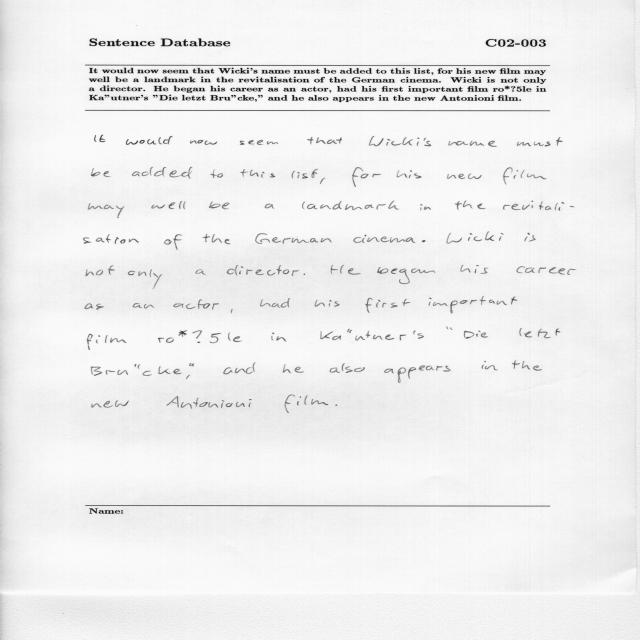 Sentence Database C02-003
It would now seem that Wicki's name must be added to this list, for his new film may
well be a landmark in the revitalisation of the German cinema. Wicki is not only
a director. He began his career as an actor, had his first important film ro*?5le in
Ka"utner's "Die letzt Bru"cke," and he also appears in the new Antonioni film.
It would now seem that Wicki's name must
be added to this list, for his new film
may well be a landmark in the revitali-
sation of the German cinema. Wicki is
not only a director. He began his career
as an actor, had his first important
film ro*?5le in Ka"utner's "Die letzt
Bru"cke," and he also appears in the
new Antonioni film.
Name: